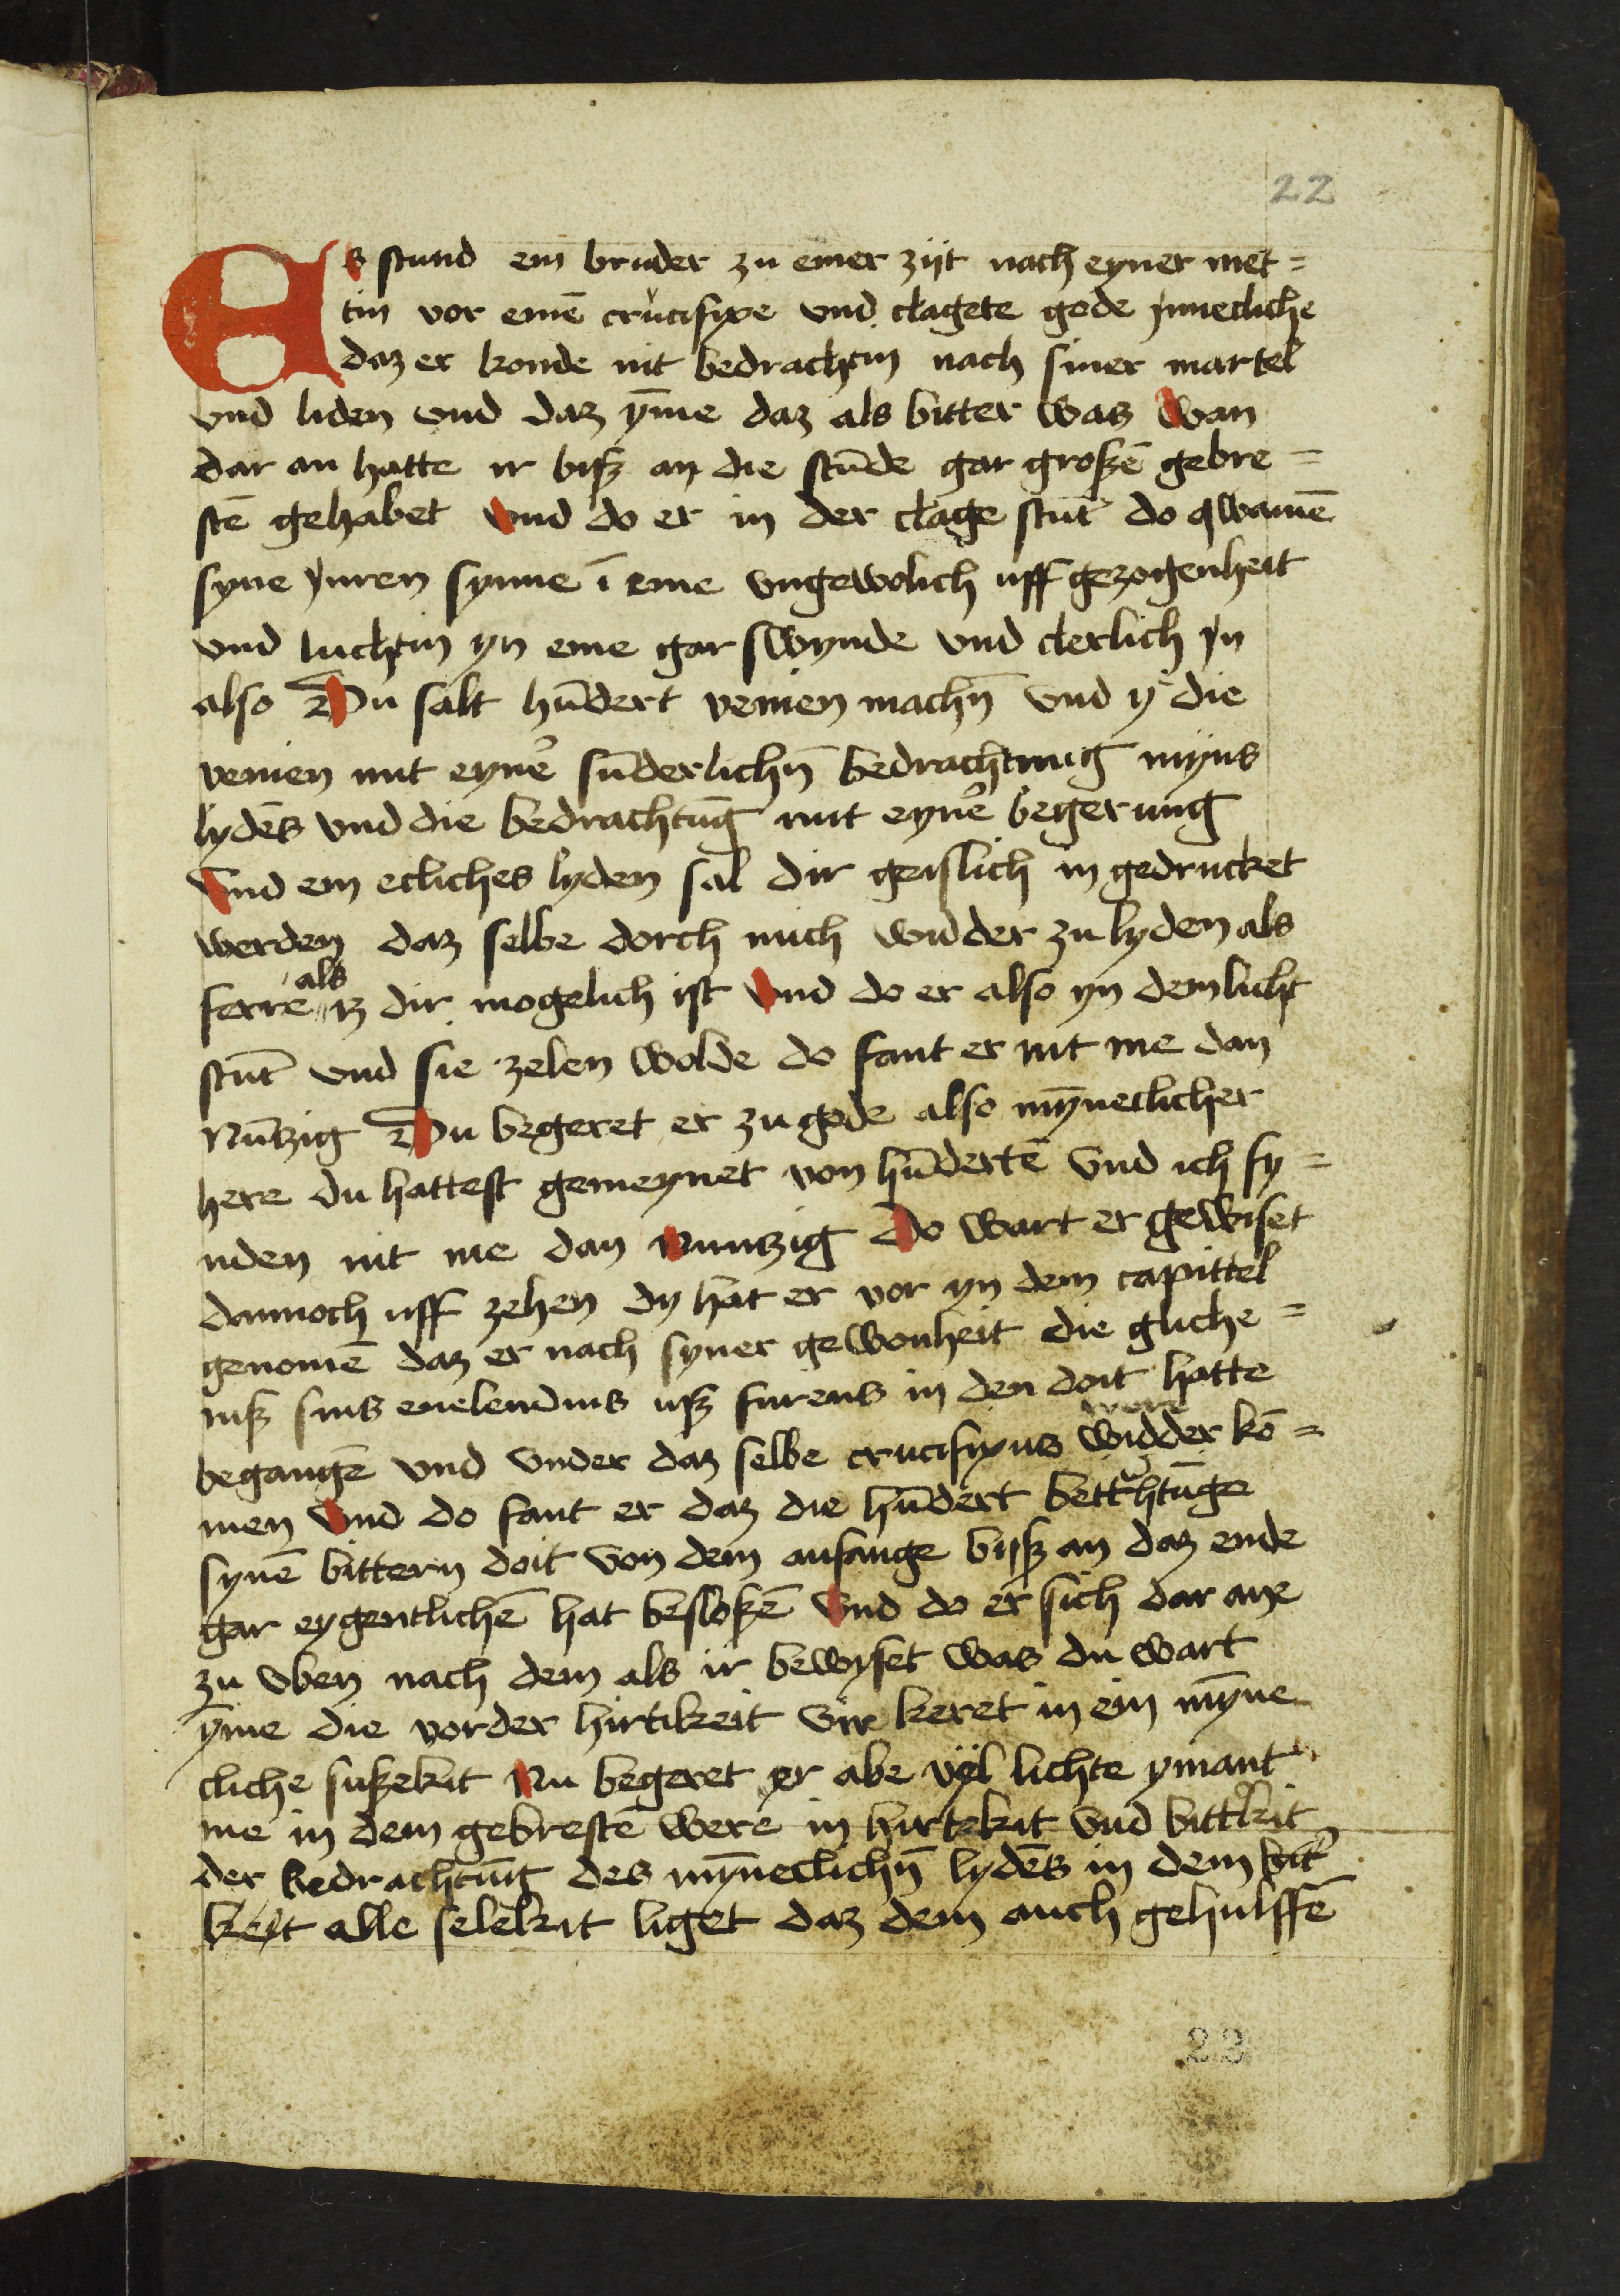 22
Es stund ein bruder zu einer zijt nach eyner met=
tin vor einē crucifixe vnd clagete gode ynnecliche
daz er konde nit bedrachtin nach siner martel
vnd liden vnd daz ȳme daz als bitter was wan
dar an hatte ir bisz an die stūde gar groszē gebre=
stē gehabet vnd do er in der clage stūt do qwamē
syne ynren synne ī eine vngewolich uff gezogenheit
vnd luchtin yn eine gar swynde vnd clerlich yn
also Du salt hūdert venien machn̄ vnd y die
venien mit eynē sūderlichn̄ bedrachtung myns
lydēs vnd die bedrachtūg mit eynē begerung
vnd ein ecliches lyden sal dir geislich in gedrucket
werden daz selbe dorch mich widder zu lyden als
ferre als iz dir mogelich ist vnd do er also yn dem licht
stūt vnd sie zelen wolde do fant er nit me dan
Nūtzig Du begeret er zu gode also mȳneclicher
here du hattest gemeynet von hūdertē vnd ich fy=
nden nit me dan Nuntzig Do wart er gewiset
dannoch uff zehen dy hat er vor yn dem capittel
genomē daz er nach syner gewonheit die gliche=
nisz sins enelendins usz furens in den doit hatte
begangē vnd vnder daz selbe crucifixus were widder kō=
men vnd do fant er daz die hūdert bettrhtūge
synē bittern doit von dem anfange bisz an daz ende
gar eygentlichē hat besloszē vnd do er sich dar ane
zu vben nach dem als ir bewyset was du wart
ȳme die vorder hirtikeit vir keret in ein mȳne
cliche suszekit Nu begeret er abe vyl lichte ymant
me in dem gebrestē were in hirtekit vnd bittrkit
der bedrachtūg des mȳneclichn̄ lydēs in dem bit
keyt alle selekit liget daz dem auch gehulffē
22